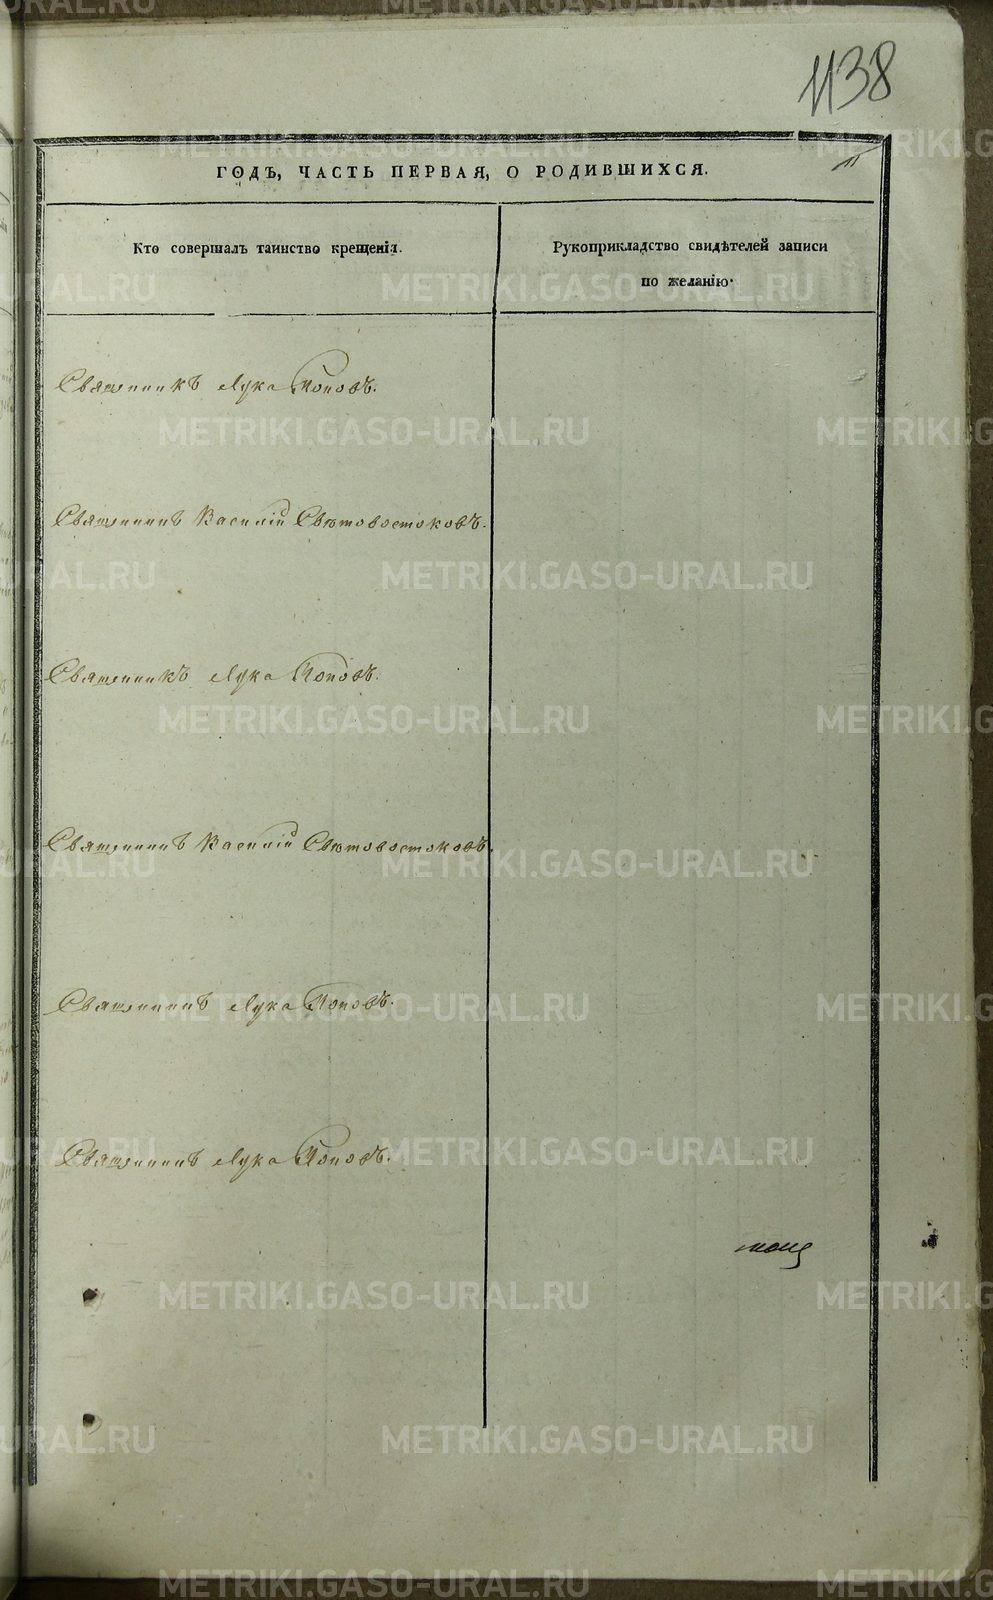 1138
11
ГОДЪ, ЧАСТЬ ПЕРВАЯ, О РОДИВШИХСЯ.
Кто совершалъ таинство крещенія.
Рукоприкладство свидѣтелей записи
по желанію.
Священникъ Лука Поповъ.
Священникъ Василій Свѣтовостоковъ.
Священникъ Лука Поповъ.
Священникъ Василій Свѣтовостоковъ.
Священникъ Лука Поповъ.
Священникъ Лука Поповъ.
METRIKI.GASO-URAL.RU